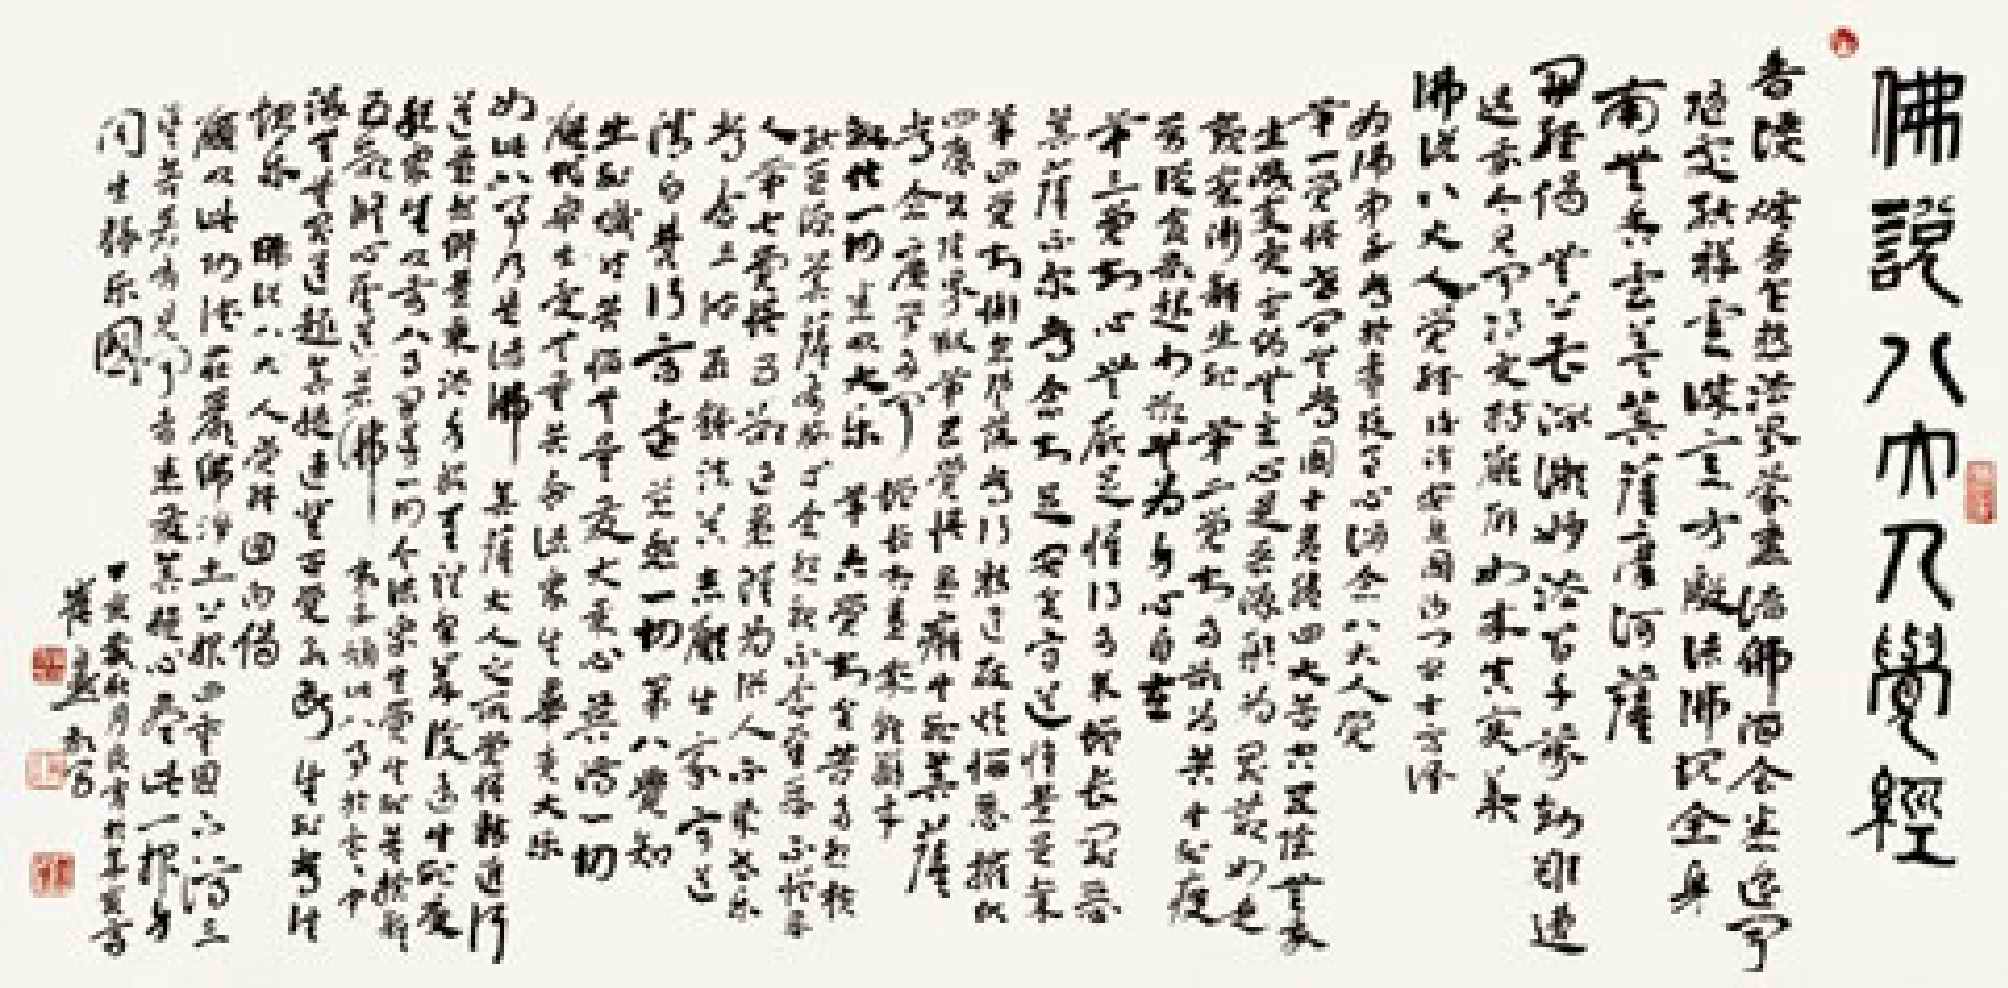 佛說八大人覺經
香讚 爐香乍熱法界蒙薰諸佛海會悉遙聞
隨處結祥雲誠意方殷諸佛現全身
南無香雲蓋菩薩摩訶薩
開經偈 無上甚深微妙法百千萬劫難遭
遇我今見聞得受持願解如來真實義
佛說八大人覺經 後漢安息國沙門安世高譯
為佛弟子常於晝夜至心誦念八大人覺
第一覺悟世間無常國土危脆四大苦空五陰無我
生滅變異虛偽無主心是惡源形為罪藪如是
觀察漸離生死 第二覺知多欲為苦生死疲
勞從貪欲起少欲無為身心自在
第三覺知心無厭足惟得多求增長罪惡
菩薩不爾常念知足安貧守道惟慧是業
第四覺知懈怠墜落常行精進破煩惱惡摧伏
四魔出陰界獄 第五覺悟愚癡生死菩薩
常念廣學多聞 增長智慧成就辯才
教化一切悉以大樂 第六覺知貧苦多怨橫
結惡緣菩薩布施等念怨親不念舊惡不憎惡
人 第七覺悟五欲過患雖為俗人不染世樂
常念三衣瓦缽法器志願出家守道
清白梵行高遠慈悲一切 第八覺知
生死熾然苦惱無量發大乘心普濟一切
願代眾生受無量苦令諸眾生畢竟大樂
如此八事乃是諸佛 菩薩大人之所覺悟精進行
道慈悲修慧乘法身船至涅槃岸復還生死度
脫眾生以前八事開導一切令諸眾生覺生死苦捨離
五欲修心聖道若佛 弟子誦此八事於念念中
滅無量罪進趣菩提速登正覺永斷 生死常住
快樂 佛說八大人覺經 回向偈
願以此功德莊嚴佛淨土上報四重恩下濟三
塗苦若有見聞者悉發菩提心盡此一報身
同生極樂國